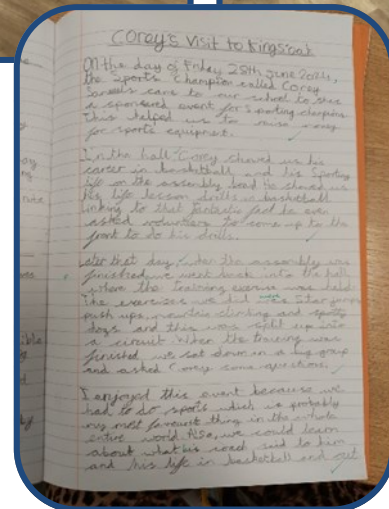 Corey's Visit to Kingsoak
On the day of Friday 28th June 2024,
the Sports Champion called Corey
came to our school to
a sponsored event for Sporting champions
This helped us to raise money
for sports equipment.
In the hall Corey showed us his
career in basketball and his Sporting
life on the assembly board he showed us
his life lesson drills in basketball
linking to that fantastic fact he even
asked volunteers to come up to the
front to do his drills.
Later that day, when the assembly was
finished, we went back into the hall
where the training exercise was held.
The exercises we did were Star jumps
push ups, mountain climbing and spotty
dogs and this was split up into
a circuit. When the training was
finished we sat down in a big group
and asked Corey some questions.
I enjoyed this event because we
had to do sports which is probably
my most favourite thing in the whole
entire world. Also, we could learn
about what his coach said to him
and his life in basketball and out